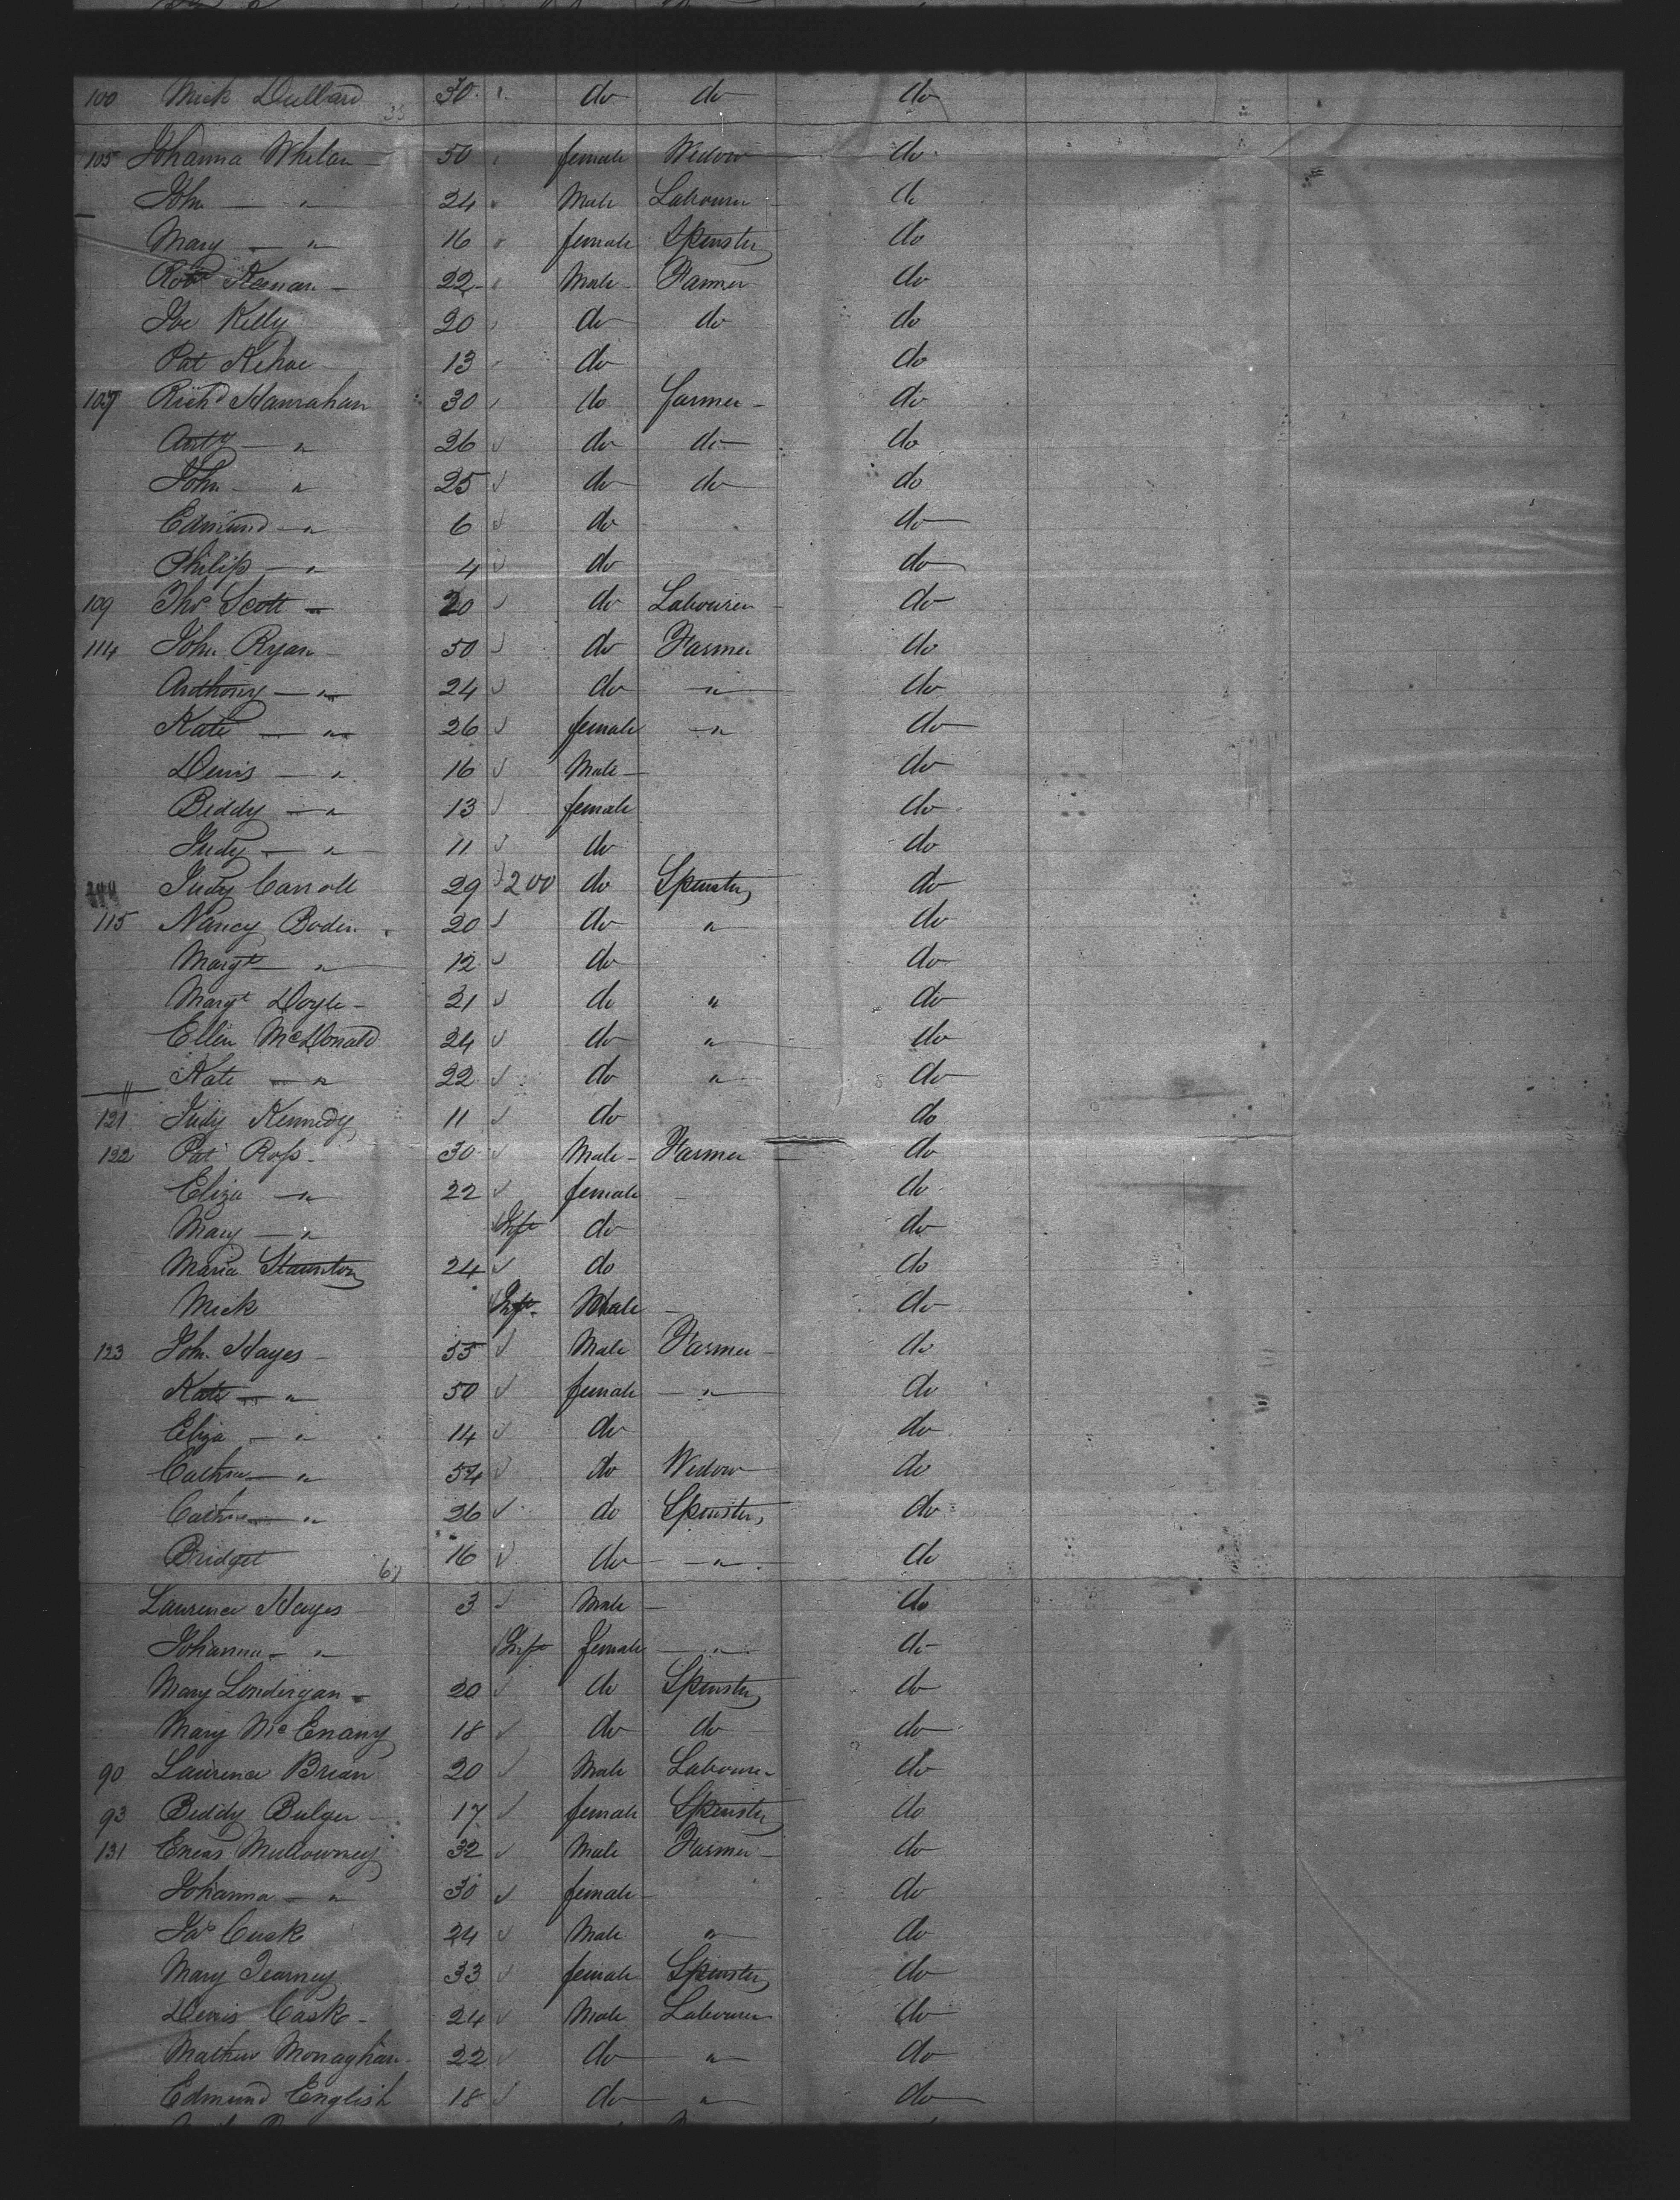 100 Mick Dullard 30 do do do
33
105 Johanna Whelan 50 female Widow do
John — " 24 Male Labourer do
Mary — " 16 female Spinster do
Robt Keenan — 22 Male Farmer do
Joe Kelly 20 do do do
Pat Kehoe 13 do do
107 Richd Hanrahan 30 do farmer do
Anty — " 26 do do do
John — " 25 do do do
Edmund — " 6 do do
Philip — " 4 do do
109 Thos Scott — 20 do Labourer do
114 John Ryan 50 do Farmer do
Anthony — " 24 do " do
Kate — " 26 female " do
Denis — " 16 Male do
Biddy — " 13 female do
Judy — " 11 do do
Judy Carroll 29 200 do Spinster do
115 Nancy Bodin 20 do " do
Margt — " 12 do do
Margt Doyle — 21 do " do
Ellen McDonald 24 do " do
Kate — " 22 do " do
121 Judy Kennedy 11 do do
122 Pat Ross 30 Male Farmer do
Eliza — " 22 female do
Mary — " Inft do do
Maria Staunton 24 do do
Mick Inft Male do
123 John Hayes — 55 Male Farmer do
Kate — " 50 female " do
Eliza — " 14 do do
Cathne — " 54 do Widow do
Cathne — " 26 do Spinster do
Bridget 16 do " do
61
Laurence Hayes 3 Male do
Johanna — " Inft female " do
Mary Londirgan — 20 do Spinster do
Mary McEnany 18 do do do
90 Laurence Brien 20 Male Labourer do
93 Biddy Bulger 17 female Spinster do
131 Eneas Mullowney 32 Male Farmer do
Johanna — " 30 female do
Jas Cusk 24 Male " do
Mary Tearney 33 female Spinster do
Denis Cask — 24 Male Labourer do
Mathew Monaghan 22 do " do
Edmund English 18 do " do